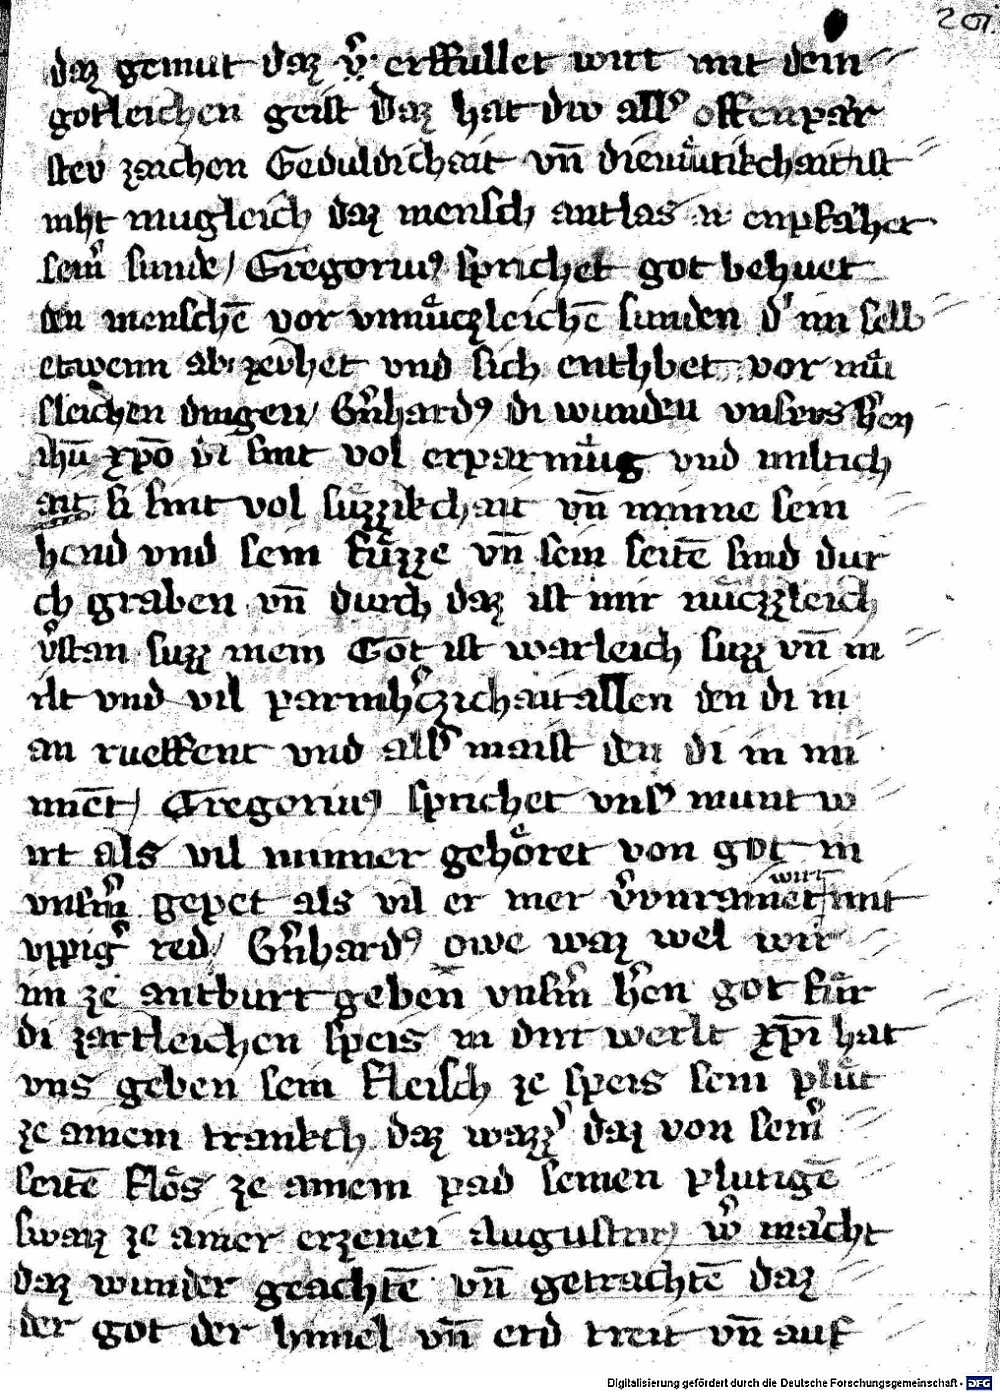 201.
daz gemut daz v̾ erffullet wirt mit dem
gotleichen geist Daz hat diu all̾ offenpär
stev zaichen Geduldichait vn̄ diemůtikchait ist
niht mugleich daz mensch antlas enpfahet
seīn̾ sunde / Gregorius sprichet got behuet
den menschē vor vnnůczleichē sunden d̾ im selb
etwenn ab zevhet vnd sich enthbet vor
sleichen dingen / B̾nhardꝰ di wunden vnsers h̾en
ihū xp̄o di sint vol erparmůg vnd miltich
ait si sint vol suͤzzikchait vn̄ minne sein
hend vnd sein fuͤzze vn̄ sein seitē sind dur
ch graben vn̄ durch daz ist mir nůczzleich
v̾stan suzz mein Got ist warleich suzz vn̄ m
ilt vnd vil parmh̾czichait allen den di in
an rueffent vnd all̾ maist den di in mi
nnēt / Gregorius sprichet vns̾ munt w
irt als vil minner gehoͤret von got in
vnsm̾ gepet als vil er mer v̾vnrainet wirt mit
vppig̾ red / B̾nhardꝰ owe waz wel wir
im ze antburt gebēn vnsm̾ h̾en got fuͤr
di zartleichen speis in dirr werlt xp̄i hat
vns geben sein fleisch ze speis sein pluͤt
ze ainem trankch daz wazz̾ daz von sein̾
seitē floͤs ze ainem pad seinen plutigē
swaiz ze ainer erzenei Augustin / w̾ mächt
daz wunder geachtē vn̄ getrachtē daz
der got der himel vn̄ erd treit vn̄ auf
Digitalisierung gefördert durch die Deutsche Forschungsgemeinschaft - DFG